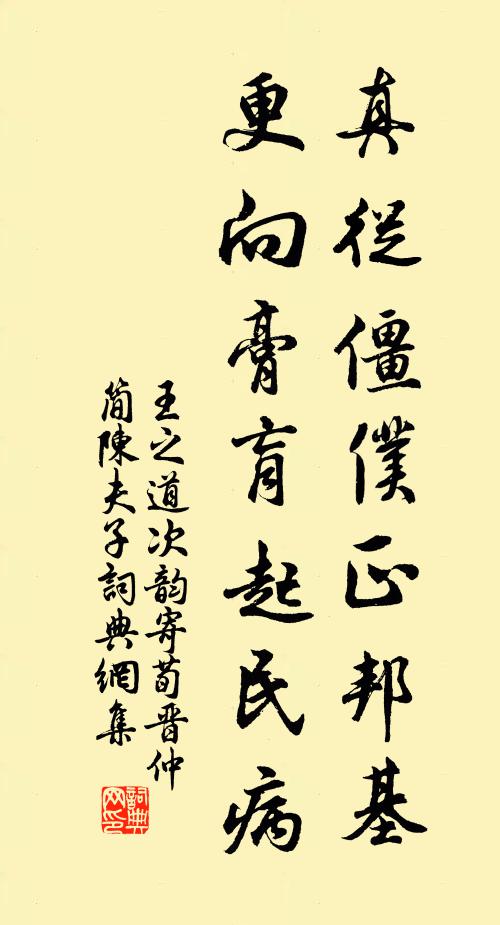 真從僵僕正邦基
更向膏肓起民病
王之道次韵寄荀晋仲
簡陳夫子詞典網集
詞典网印